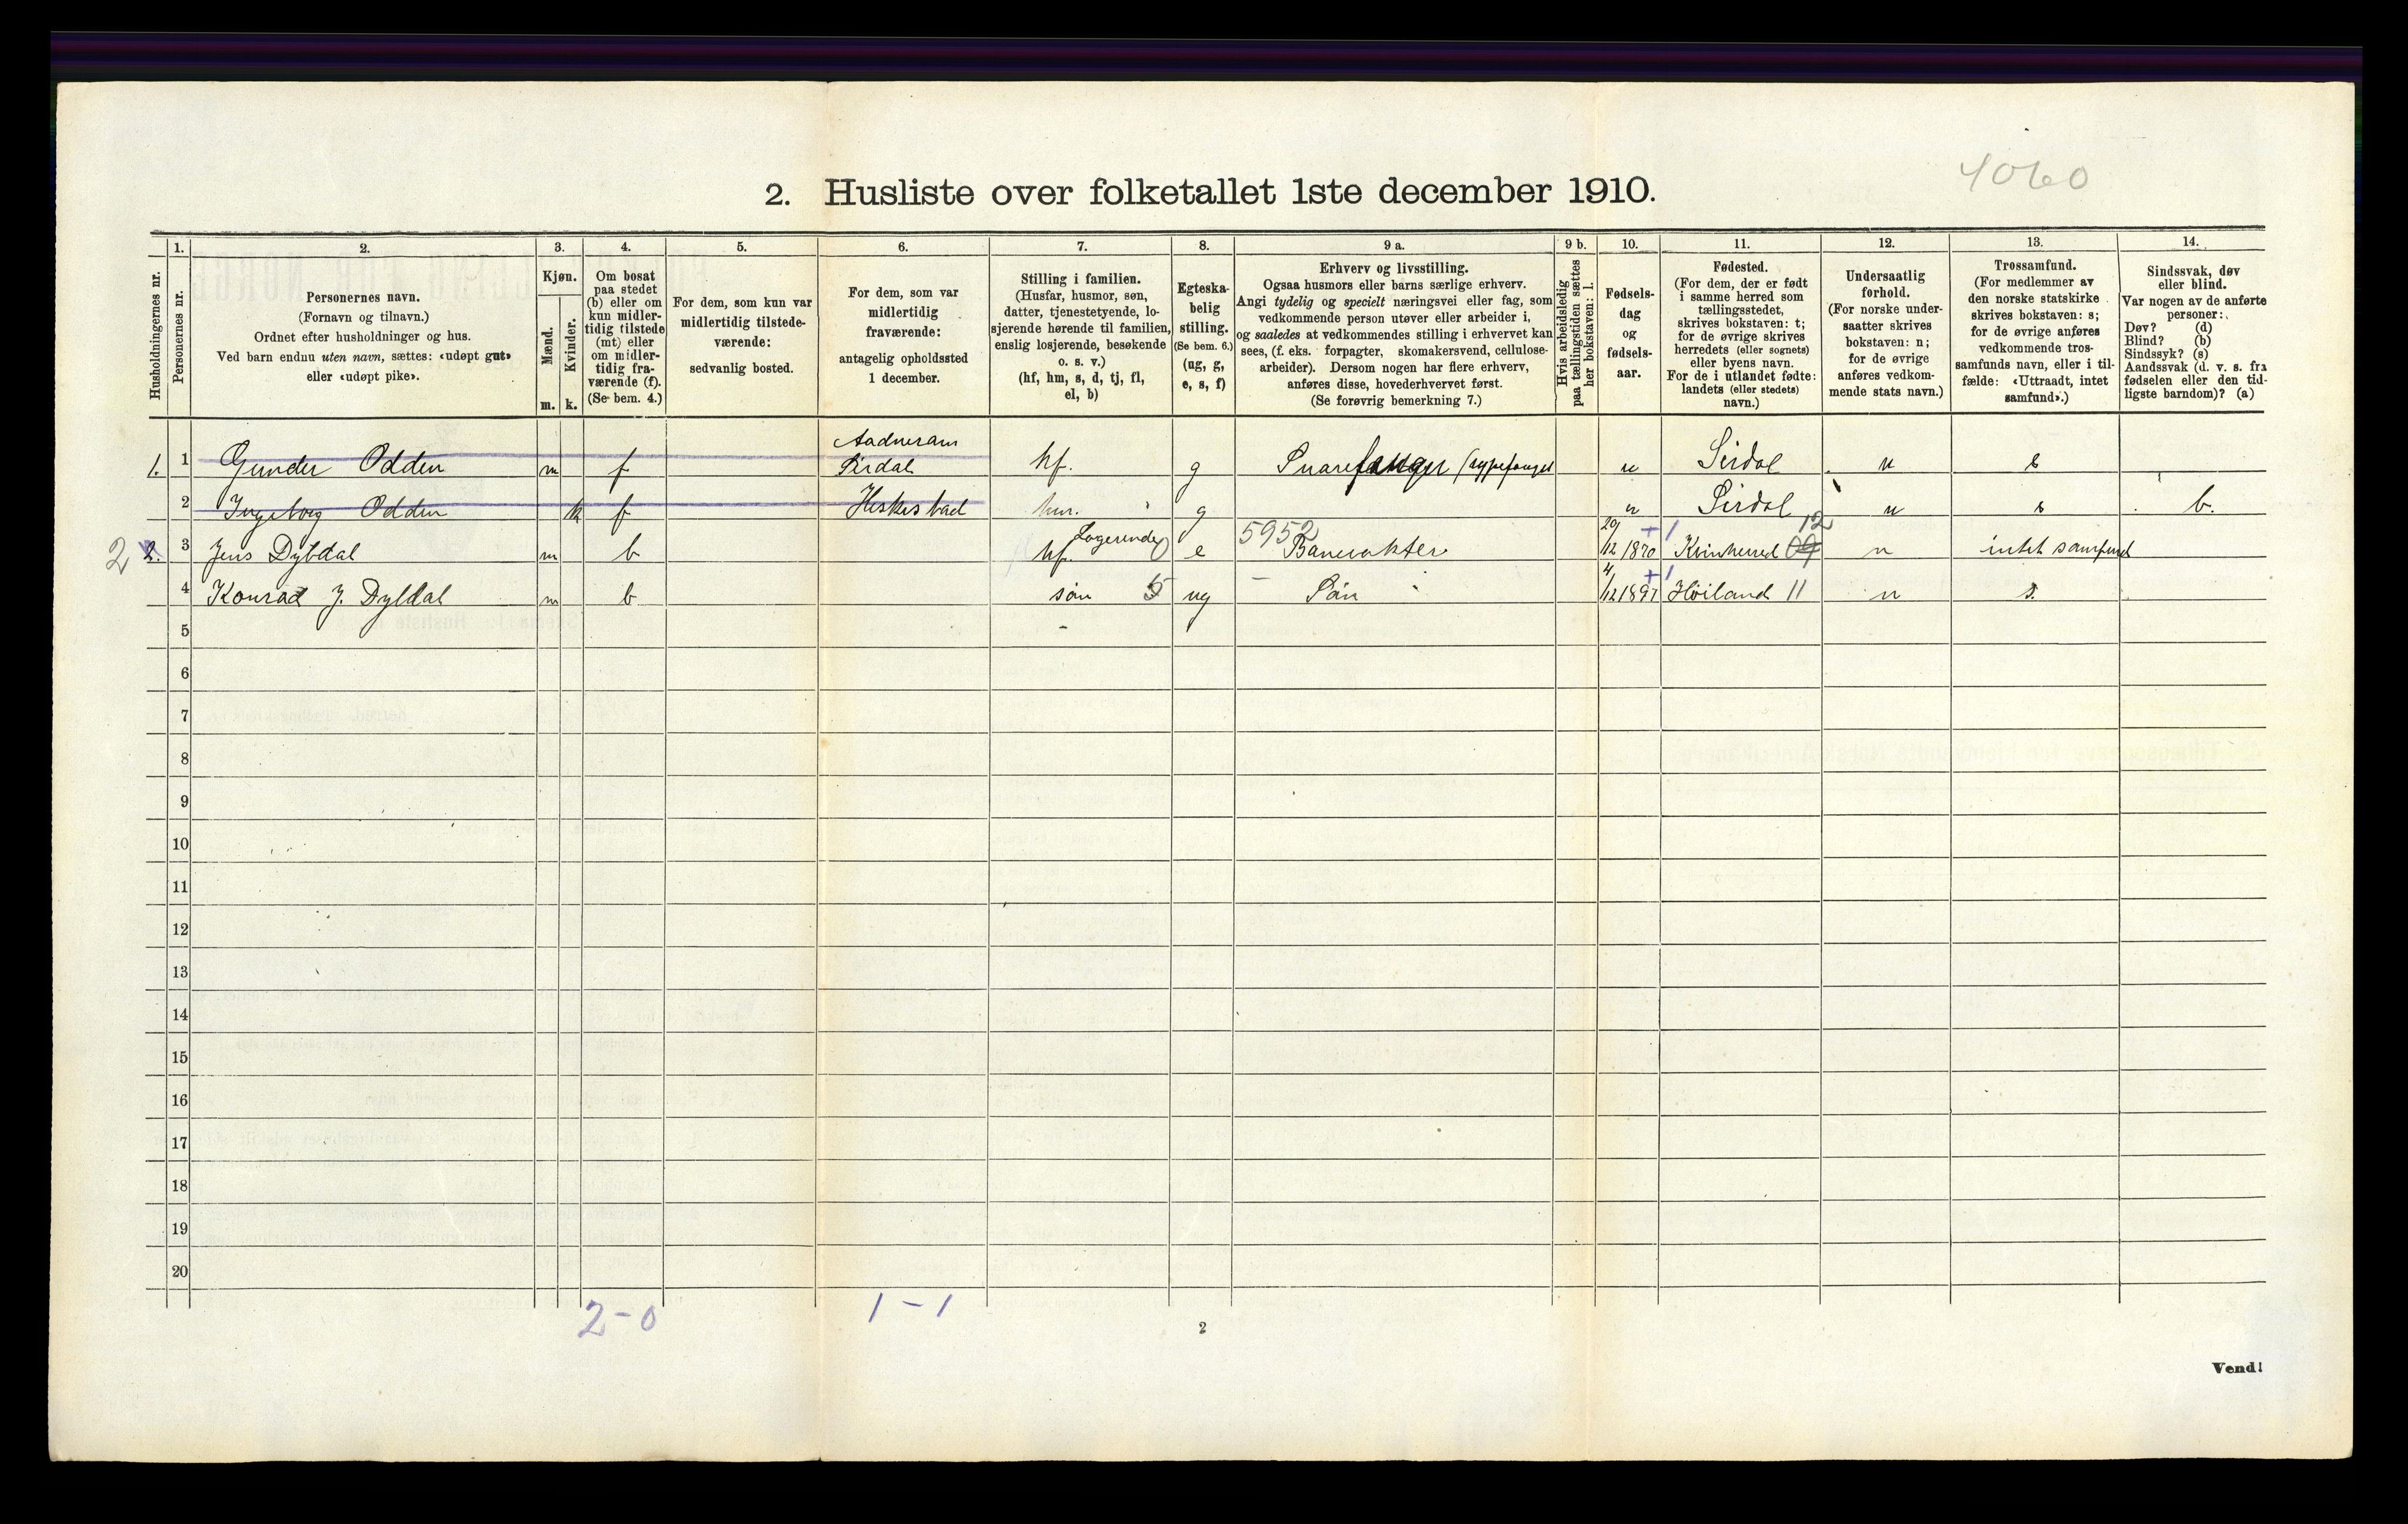 4060
2. Husliste over folketallet 1ste december 1910.
Husholdningernes nr.
1.
Personernes nr.
2.
Personernes navn.
(Fornavn og tilnavn.)
Ordnet efter husholdninger og hus.
Ved barn endnu uten navn, sættes: «udøpt gut»
eller «udøpt pike».
3.
Kjøn.
Mænd.
Kvinder.
m. k.
4.
Om bosat
paa stedet
(b) eller om
kun midler-
tidig tilstede
(mt) eller
om midler-
tidig fra-
værende (f).
(Se bem. 4.)
5.
For dem, som kun var
midlertidig tilstede-
værende:
sedvanlig bosted.
6.
For dem, som var
midlertidig
fraværende:
antagelig opholdssted
1 december.
7.
Stilling i familien.
(Husfar, husmor, søn,
datter, tjenestetyende, lo-
sjerende hørende til familien,
enslig losjerende, besøkende
o. s. v.)
(hf, hm, s, d, tj, fl,
el, b)
8.
Egteska-
belig
stilling.
(Se bem. 6.)
(ug, g,
e, s, f)
9 a.
Erhverv og livsstilling.
Ogsaa husmors eller barns særlige erhverv.
Angi tydelig og specielt næringsvei eller fag, som
vedkommende person utøver eller arbeider i,
og saaledes at vedkommendes stilling i erhvervet kan
sees, (f. eks. forpagter, skomakersvend, cellulose-
arbeider). Dersom nogen har flere erhverv,
anføres disse, hovederhvervet først.
(Se forøvrig bemerkning 7.)
9 b.
Hvis arbeidsledig
paa tællingstiden sættes
her bokstaven: l.
10.
Fødsels-
dag
og
fødsels-
aar.
11.
Fødested.
(For dem, der er født
i samme herred som
tællingsstedet,
skrives bokstaven: t;
for de øvrige skrives
herredets (eller sognets)
eller byens navn.
For de i utlandet fødte:
landets (eller stedets)
navn.)
12.
Undersaatlig
forhold.
(For norske under-
saatter skrives
bokstaven: n;
for de øvrige
anføres vedkom-
mende stats navn.)
13.
Trossamfund.
(For medlemmer av
den norske statskirke
skrives bokstaven: s;
for de øvrige anføres
vedkommende tros-
samfunds navn, eller i til-
fælde: «Uttraadt, intet
samfund».)
14.
Sindssvak, døv
eller blind.
Var nogen av de anførte
personer:
Døv? (d)
Blind? (b)
Sindssyk? (s)
Aandssvak (d. v. s. fra
fødselen eller den tid-
ligste barndom)? (a)
Aadneram
1. 1 Gunder Odden m f Sirdal hf. g Snarefanger (rypefanget n Sirdal n s
2 Ingeborg Odden k f Heskestad hm. g n Sirdal n s b.
Logerende 5952 29 +1 12
2 2. 3 Jens Dybdal m b hf. 0 e Banevokter /12 1870 Kvinherred n intet samfund
4 +1
4 Konrad J. Dybdal m b søn 5 ug – Søn /12 1897 Høiland 11 n s.
5
6
7
8
9
10
11
12
13
14
15
16
17
18
19
20
2 - 0 1 - 1
2
Vend!